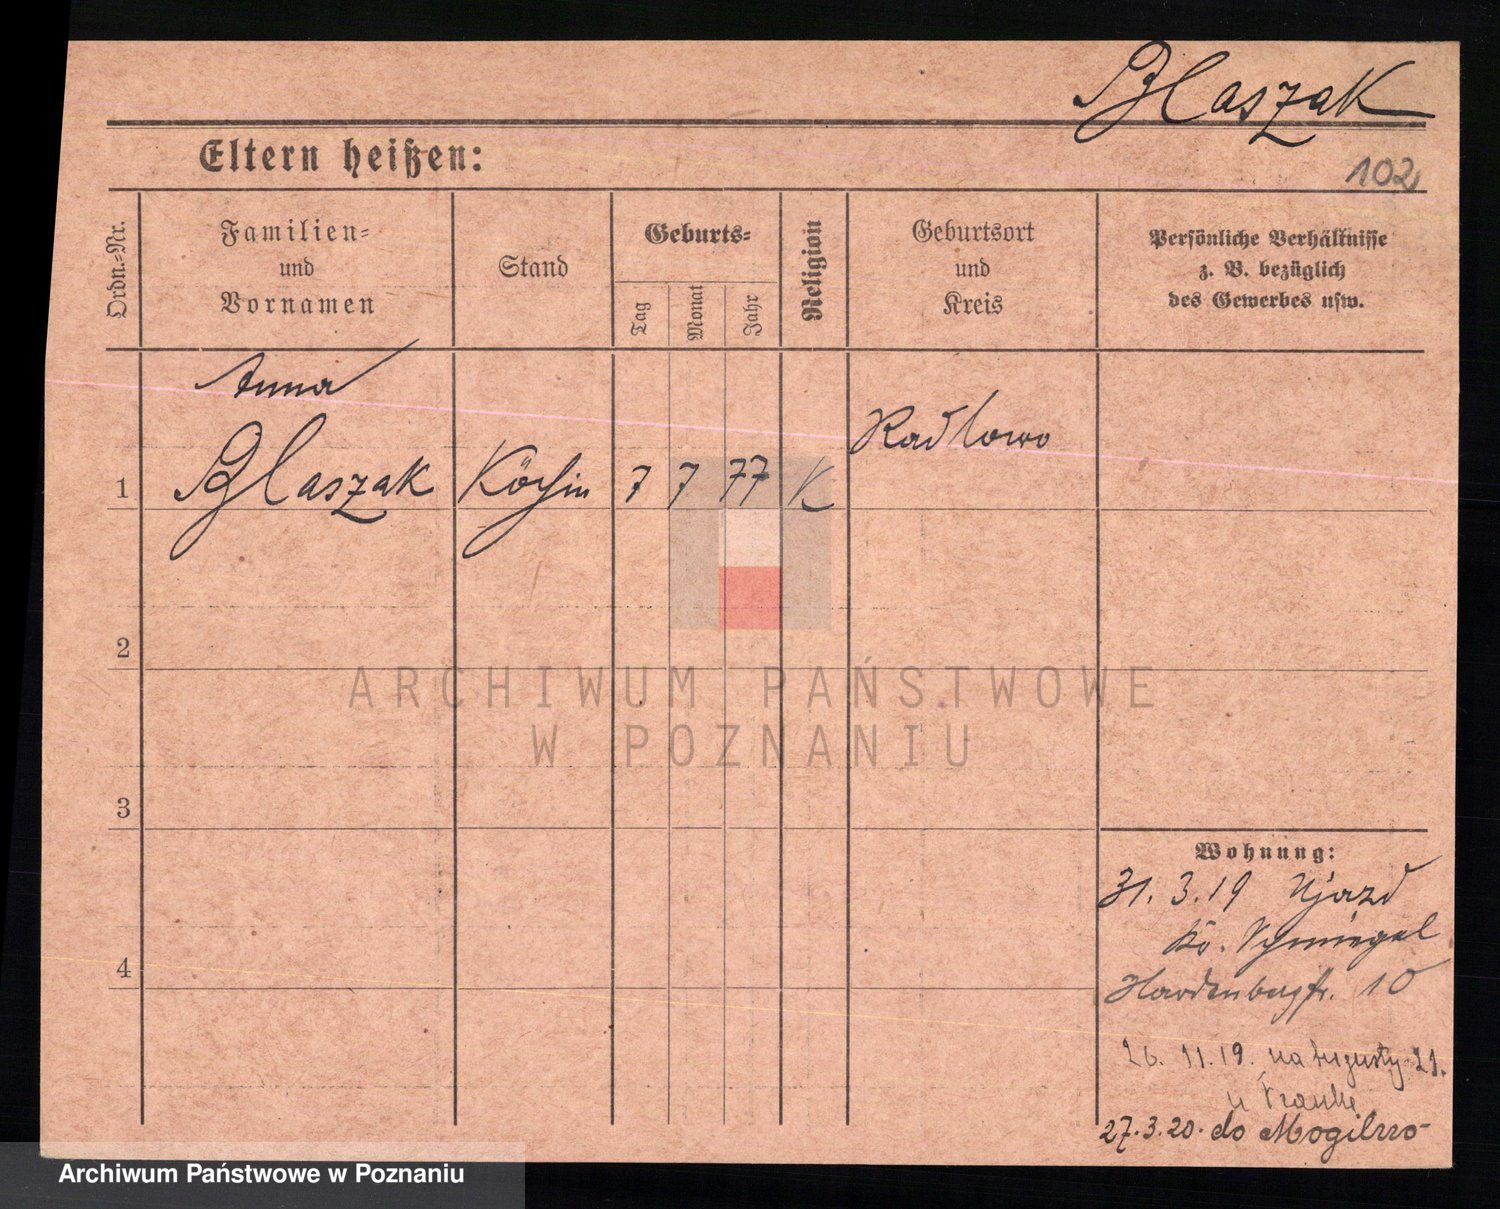 Blaszak
Eltern heißen:
102
Ordn.-Nr.
Familien-
und
Vornamen
Stand
Geburts-
Tag
Monat
Jahr
Religion
Geburtsort
und
Kreis
Persönliche Verhältnisse
z. B. bezüglich
des Gewerbes usw.
Anna
1 Blaszak Köchin 7 7 77 K Radlowo
2
3
4
Wohnung:
31. 3. 19 Ujazd
Kr. Schmiegel
Hardenbergstr. 10
26. 11. 19. na Augusty 21.
u Franke
27. 3. 20. do Mogilno
ARCHIWUM PAŃSTWOWE
W POZNANIU
Archiwum Państwowe w Poznaniu